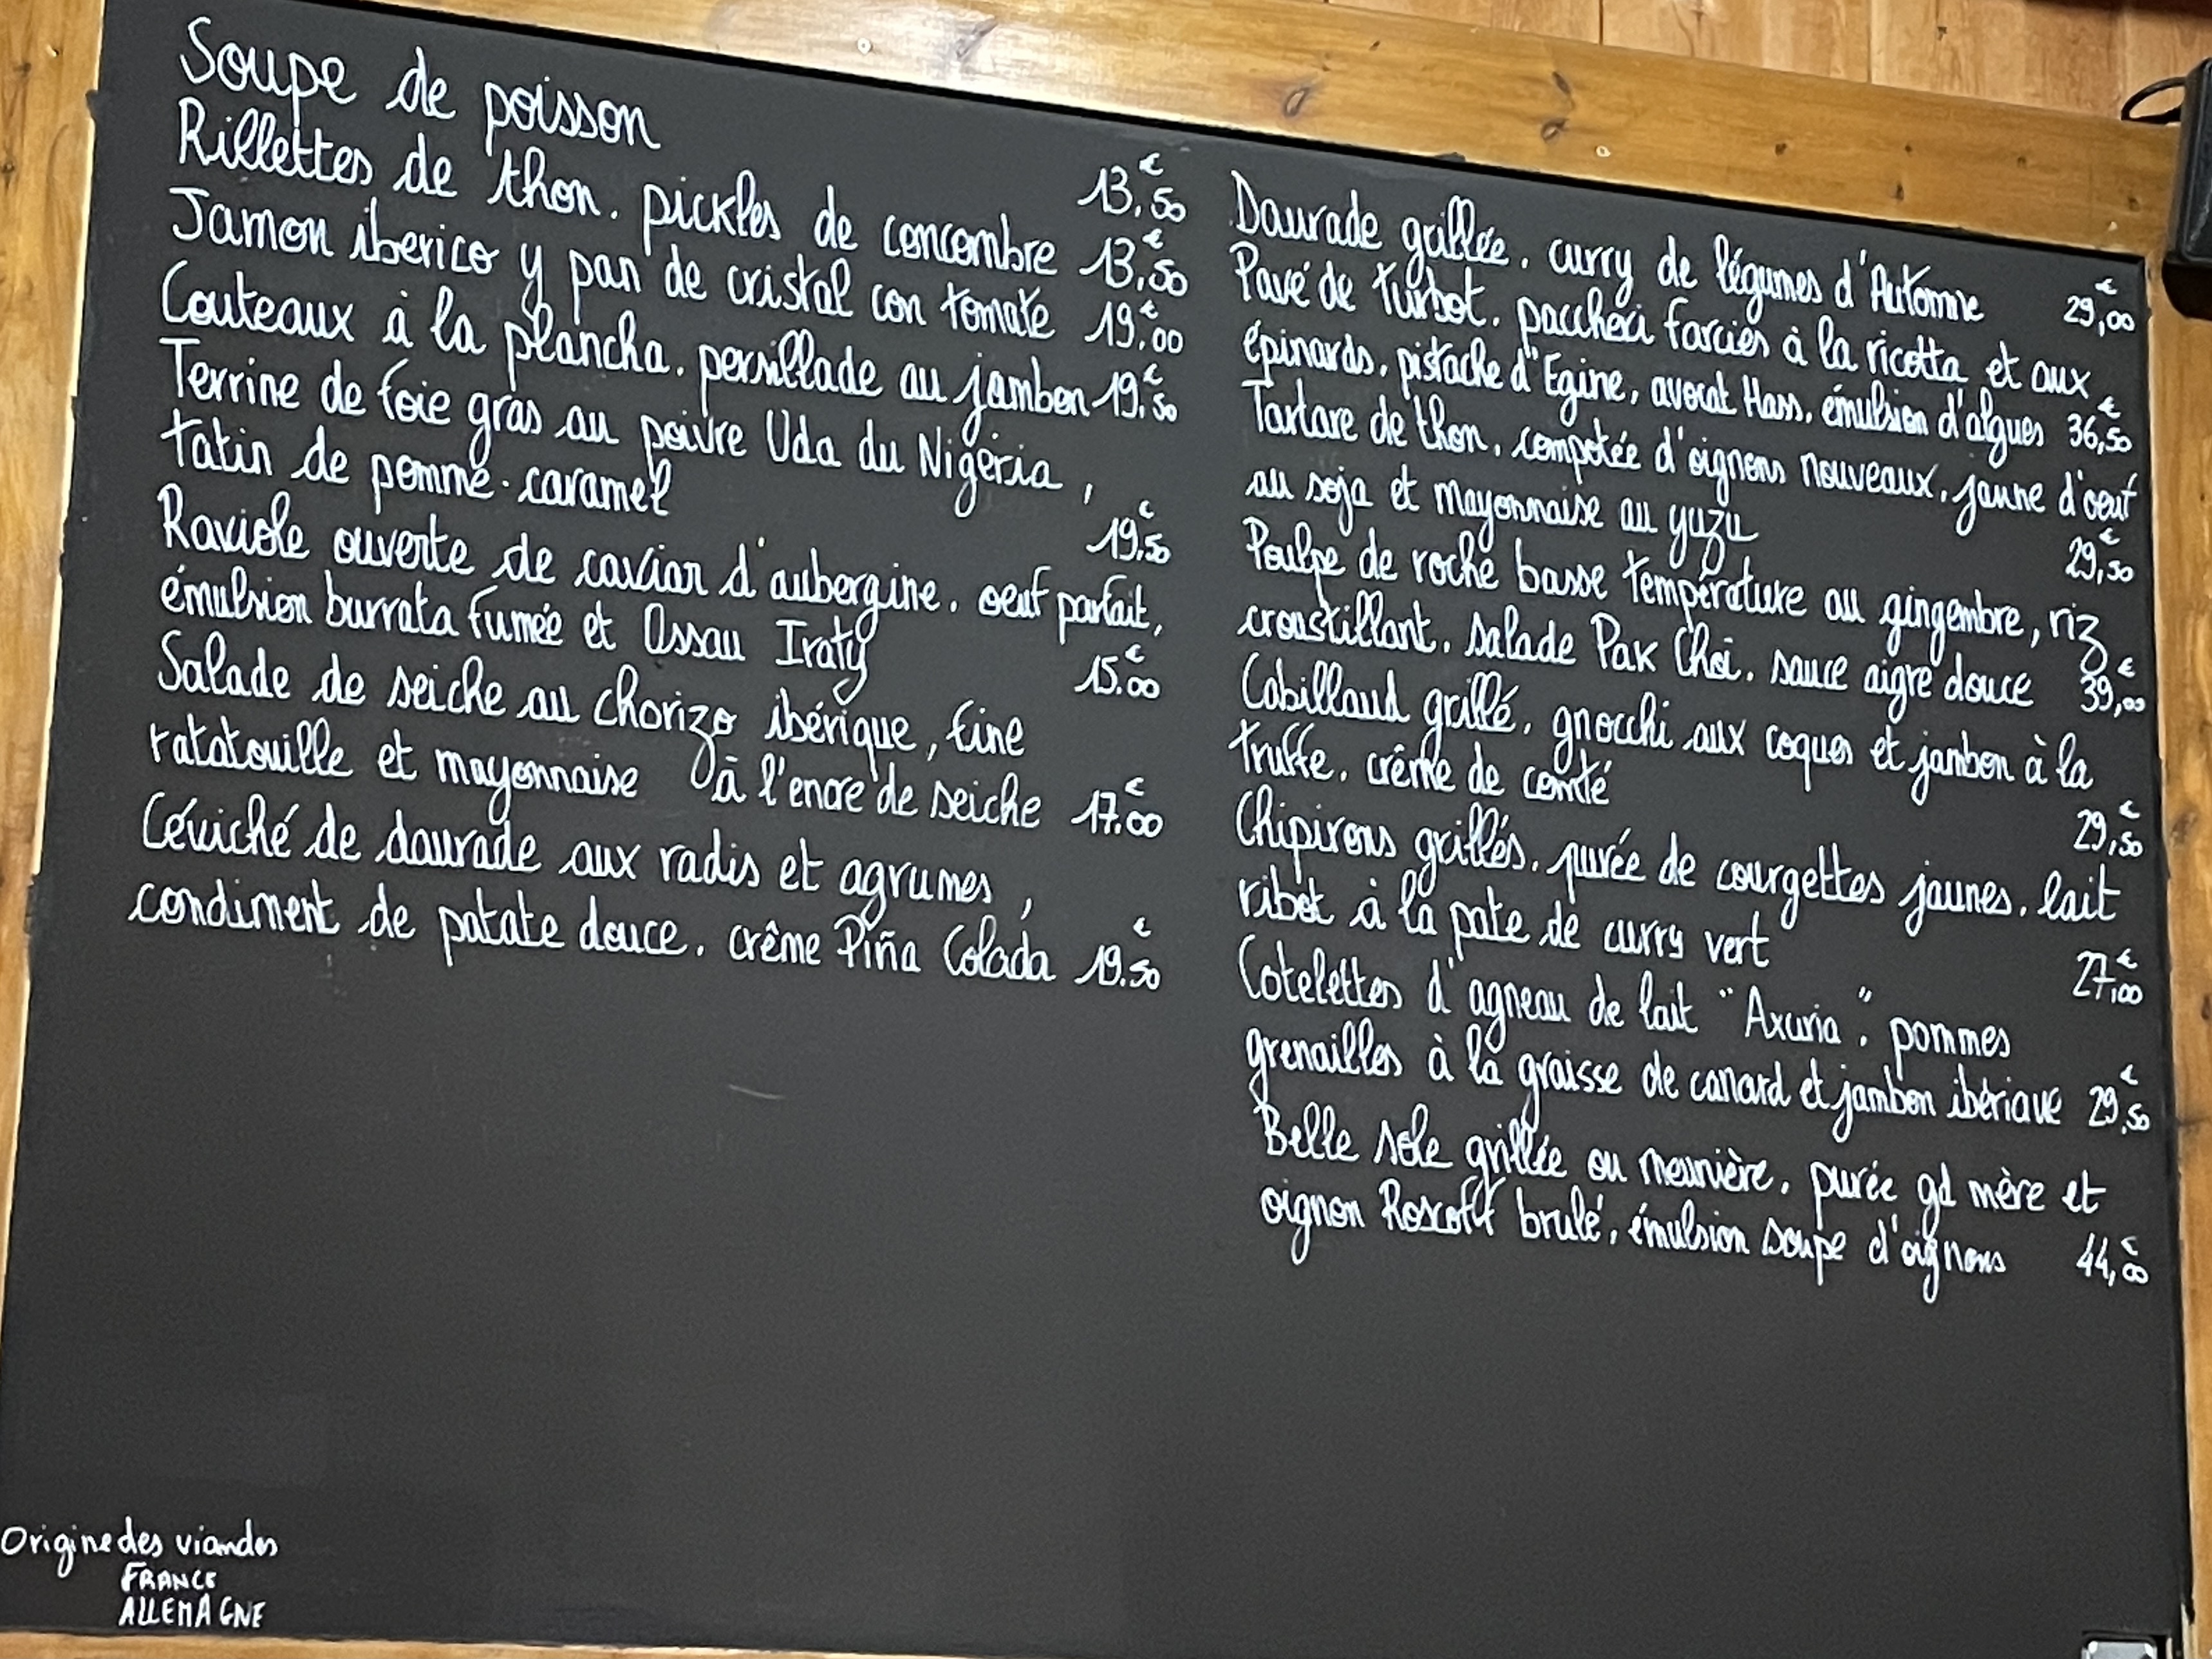 Soupe de poisson 13,50€
Rillettes de thon. pickles de concombre 13,50€
Jamon iberico y pan de cristal con tomate 19,00€
Couteaux à la plancha. persillade au jambon 19,50€
Terrine de foie gras au poivre Uda du Nigéria,
tatin de pomme. caramel 19,50€
Raviole ouverte de caviar d'aubergine. oeuf parfait,
émulsion burrata fumée et Ossau Iraty 15.00€
Salade de seiche au chorizo ibérique, fine
ratatouille et mayonnaise à l'encre de seiche 17.00€
Céviché de daurade aux radis et agrumes,
condiment de patate douce. crême Piña Colada 19.50€
Daurade grillée. curry de légumes d'Automne 29,00€
Pavé de turbot. paccheri farcies à la ricotta et aux
épinards. pistache d'Egine, avocat Hass. émulsion d'algues 36,50€
Tartare de thon. compotée d'oignons nouveaux. jaune d'oeuf
au soja et mayonnaise au yuzu 29,50€
Poulpe de roche basse température au gingembre, riz
croustillant. salade Pak Choi. sauce aigre douce 39,00€
Cabillaud grillé. gnocchi aux coques et jambon à la
truffe. crême de comté 29,50€
Chipirons grillés. purée de courgettes jaunes. lait
ribot à la pate de curry vert 27,00€
Cotelettes d'agneau de lait "Axuria". pommes
grenailles à la graisse de canard et jambon ibérique 29,50€
Belle sole grillée ou meunière. purée gd mère et
oignon Roscoff brulé. émulsion soupe d'oignons 44,00€
Origine des viandes
FRANCE
ALLEMAGNE